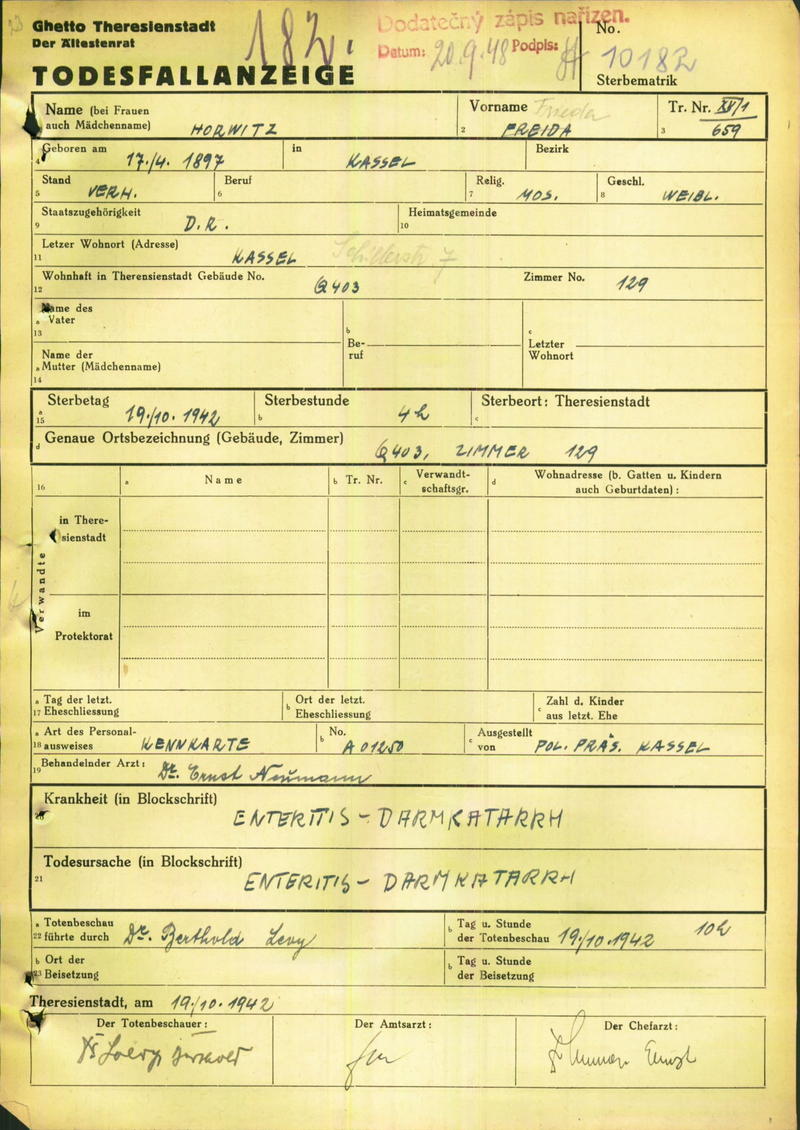 Ghetto Theresienstadt
Der Ältestenrat
TODESFALLANZEIGE
182.
Dodatečný zápis nařízen.
Datum: 20.9.48 Podpis:
No. 10182
Sterbematrik
Name (bei Frauen auch Mädchenname) HORWITZ
2 Vorname Frieda FREIDA
3 Tr. Nr. XV/1 659
4 Geboren am 17./4. 1897 in KASSEL Bezirk
5 Stand VERH. 6 Beruf 7 Relig. MOS. 8 Geschl. WEIBL.
9 Staatszugehörigkeit D.R. 10 Heimatsgemeinde
11 Letzer Wohnort (Adresse) KASSEL Schillerstr 7
12 Wohnhaft in Therensienstadt Gebäude No. Q403 Zimmer No. 129
13 a Name des Vater
14 a Name der Mutter (Mädchenname)
b Be-ruf
c Letzter Wohnort
15 a Sterbetag 19./10. 1942 b Sterbestunde 4h c Sterbeort: Theresienstadt
d Genaue Ortsbezeichnung (Gebäude, Zimmer) Q403, ZIMMER 129
16 a Name b Tr. Nr. c Verwandt-schaftsgr. d Wohnadresse (b. Gatten u. Kindern auch Geburtdaten):
Verwandte
in There-sienstadt
im Protektorat
17 a Tag der letzt. Eheschliessung b Ort der letzt. Eheschliessung c Zahl d. Kinder aus letzt. Ehe
18 a Art des Personal-ausweises KENNKARTE b No. A01250 c Ausgestellt von POL. PRÄS. KASSEL
19 Behandelnder Arzt: Dr. Ernst Neumann
Krankheit (in Blockschrift)
ENTERITIS - DARMKATARRH
21 Todesursache (in Blockschrift)
ENTERITIS - DARMKATARRH
22 a Totenbeschau führte durch Dr. Berthold Levy b Tag u. Stunde der Totenbeschau 19./10. 1942 10h
23 b Ort der Beisetzung b Tag u. Stunde der Beisetzung
Theresienstadt, am 19./10. 1942
Der Totenbeschauer: Der Amtsarzt: Der Chefarzt: